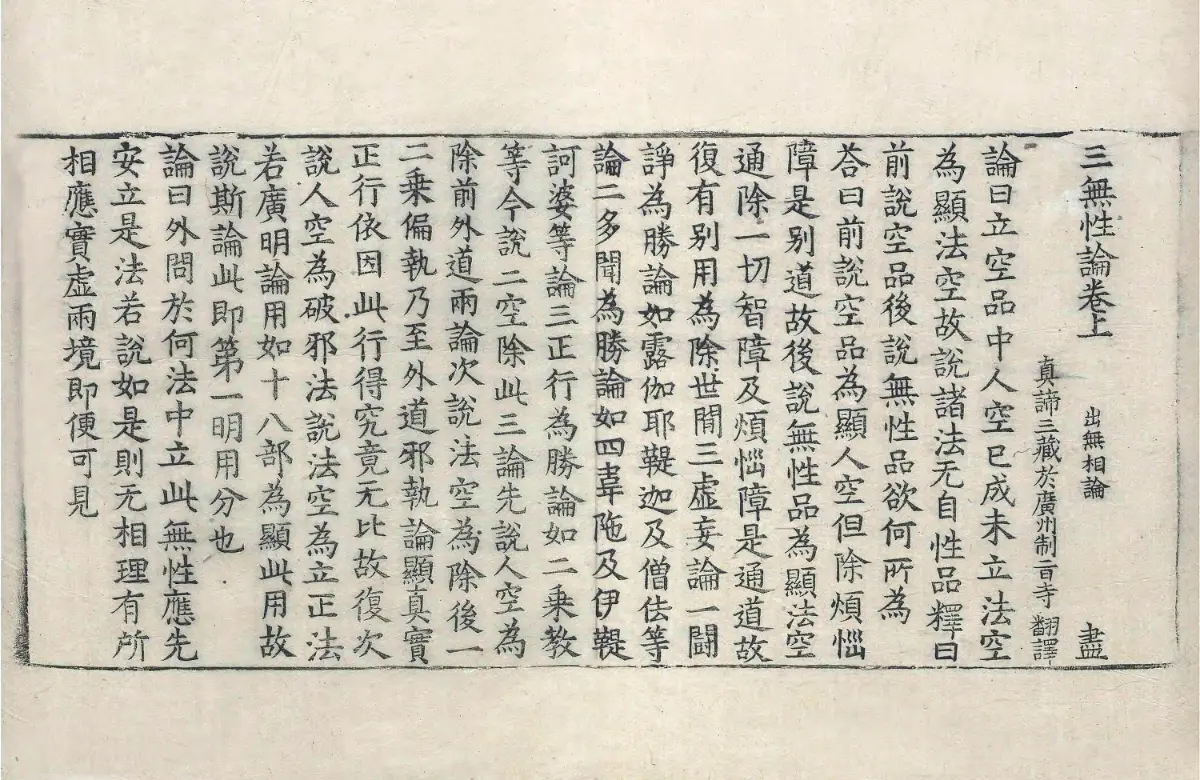 三無性論卷上 出無相論 盡
真諦三藏於廣州制旨寺翻譯
論曰立空品中人空已成未立法空
為顯法空故說諸法无自性品釋曰
前說空品後說無性品欲何所為
荅曰前說空品為顯人空但除煩惱
障是别道故後說無性品為顯法空
通除一切智障及煩惱障是通道故
復有别用為除世間三虛妄論一鬪
諍為勝論如露伽耶鞮迦及僧佉等
論二多聞為勝論如四韋陁及伊鞮
訶婆等論三正行為勝論如二乘教
等今說二空除此三論先說人空為
除前外道兩論次說法空為除後一
二乘偏執乃至外道邪執論顯真實
正行依因此行得究竟无比故復次
說人空為破邪法說法空為立正法
若廣明論用如十八部為顯此用故
說斯論此即第一明用分也
論曰外問於何法中立此無性應先
安立是法若說如是則无相理有所
相應實虛兩境即便可見